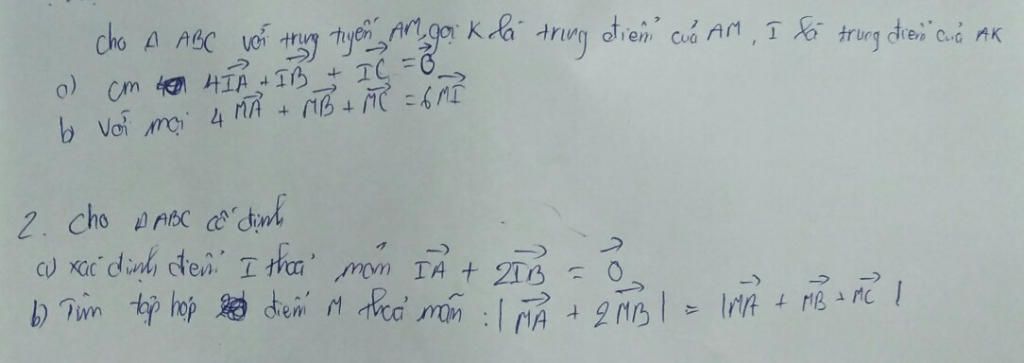 Cho Δ ABC với trung tuyến AM, gọi K là trung điểm của AM, I là trung điểm của AK
a) cm 4IA→ + IB→ + IC→ = 0→
b Với mọi 4 MA→ + MB→ + MC→ = 6MI→
2. Cho Δ ABC cố định
a) xác định điểm I thoả mãn IA→ + 2IB→ = 0→
b) Tìm tập hợp điểm M thoả mãn : |MA→ + 2MB→| = |MA→ + MB→ + MC→|